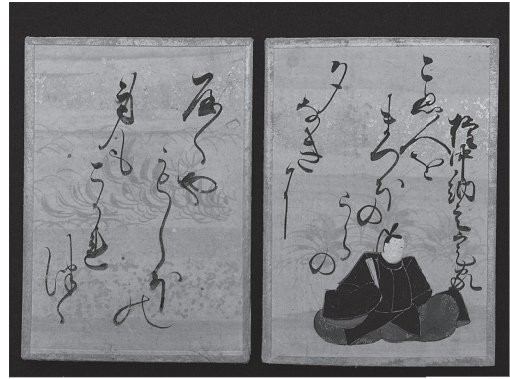 権中納言定家
こぬ人を
まつほの
うらの
夕
なきに
やくや
もしほの
身も
こかれ
つゝ